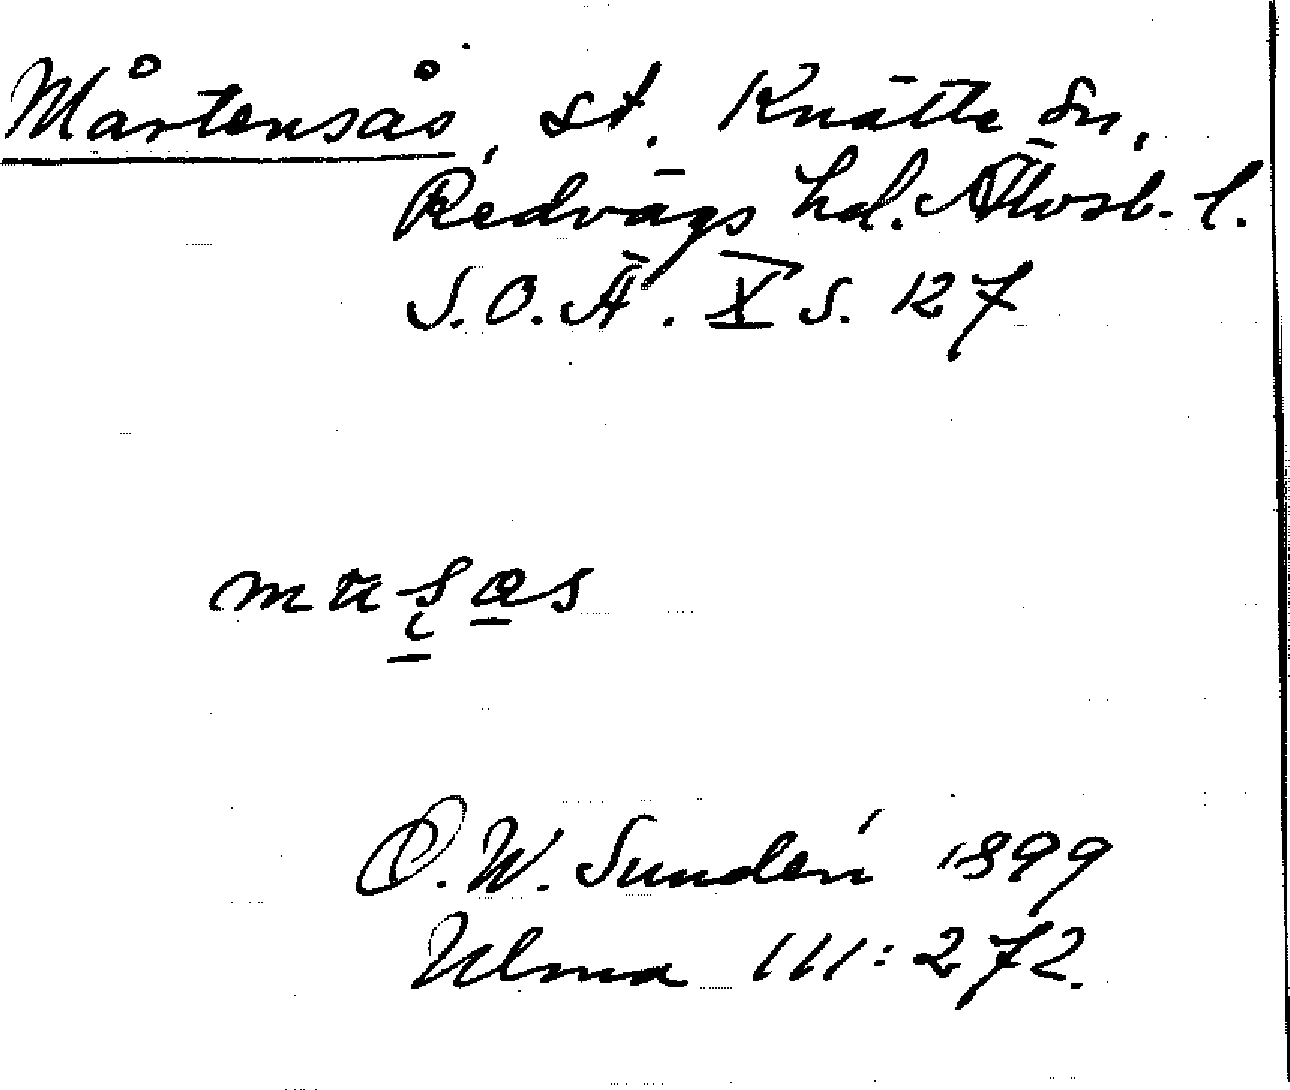 Mårtensås, st. Knätte sn,
Redvägs hd. Älvsb. l.
S.O.Ä. X s. 127
D.W. Sundén 1899
Ulma 111:272.